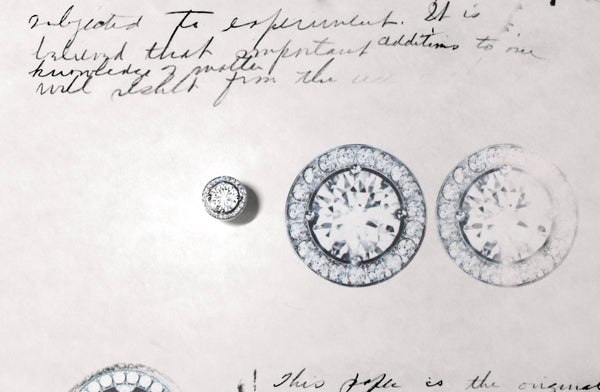 subjected to experiment. It is
believed that important additions to our
knowledge of matter
will result from the use
This paper is the original